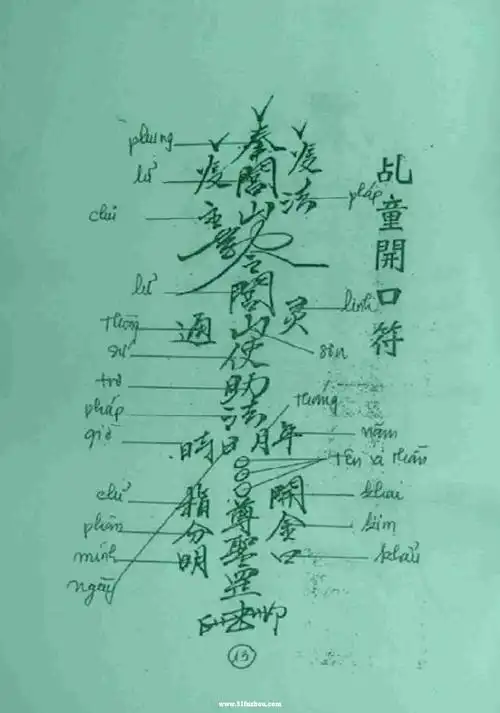 乩童開口符
phụng
lư
chủ
pháp
lư
linh
thông
sơn
sứ
trợ
tháng
pháp
giờ
năm
tên vị thần
chỉ
khai
phân
kim
minh
khẩu
ngày
奉
閭
山
法
主
令
閭
山
通
灵
使
助
法
時日月年
指
開
分
金
明
口
尊
聖
罡
13
www.51fuzhou.com